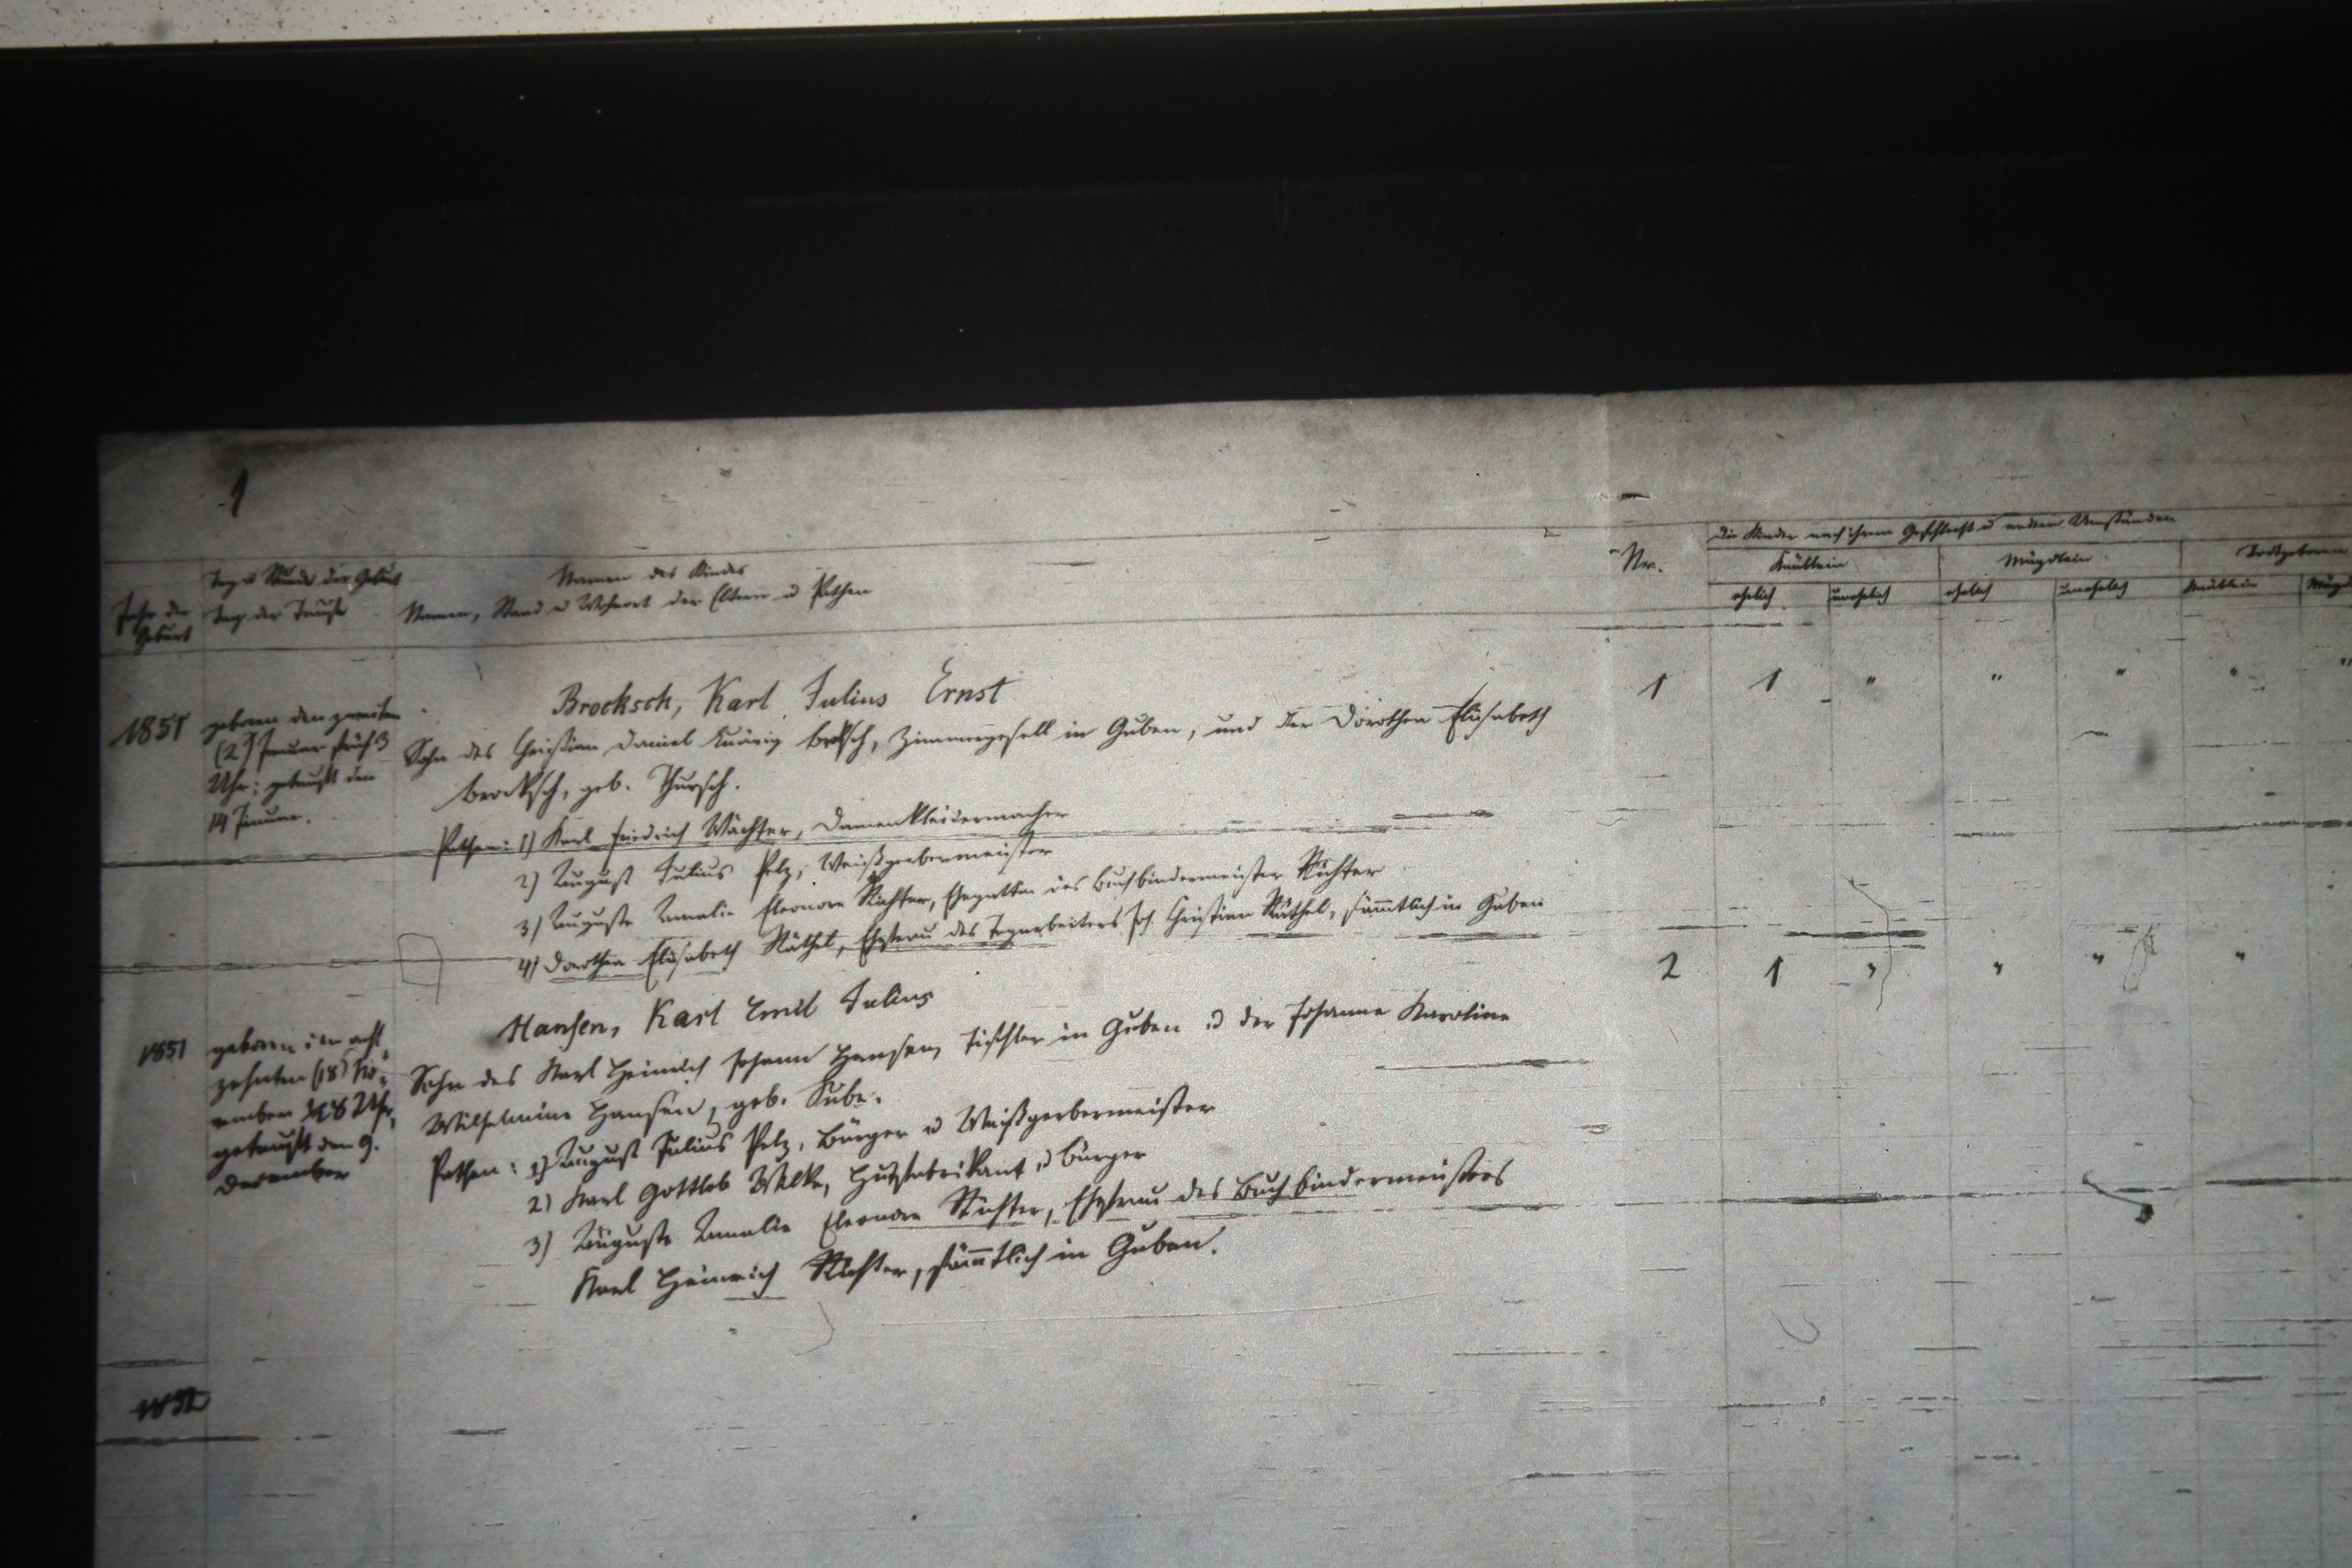 1
Jahr der Geburt
Tag u Stunde der Geburt
Tag der Taufe
Namen des Kindes
Namen, Stand u Wohnort der Eltern u Pathen
Nr.
Die Kinder nach ihrem Geschlecht u andern Umständen
Knäblein
Mägdlein
Todtgeboren
ehelich
unehelich
ehelich
unehelich
Knäblein
Mägd
1851
geboren den zweiten
(2) Januar früh 3
Uhr; getauft den
14 Januar.
Brocksch, Karl Julius Ernst
Sohn des Christian Daniel Brocksch, Zimmergesell in Guben, und der Dorothea Elisabeth
Brocksch, geb. Thursch.
Pathen: 1) Karl Friedrich Wächter, Damenkleidermacher
2) August Julius Pelz, Weißgerbermeister
3) Auguste Amalie Eleonore Richter, Ehegattin des Buchbindermeister Richter
4) Dorothea Elisabeth Räthel, Ehefrau des Tagearbeiters Joh. Christian Räthel, sämmtlich in Guben
1 1 " " " " "
1851
geboren den acht
zehnten (18) No=
vember 8 Uhr,
getauft den 9.
December
Hansen, Karl Emil Julius
Sohn des Karl Heinrich Johann Hansen, Tischler in Guben u der Johanne Karoline
Wilhelmine Hansen, geb. Kube.
Pathen: 1) August Julius Pelz, Bürger u Weißgerbermeister
2) Karl Gottlob Wilke, Hutfabrikant u Bürger
3) Auguste Amalie Eleonore Richter, Ehefrau des Buchbindermeisters
Karl Heinrich Richter, sämmtlich in Guben.
2 1 " " " "
1852